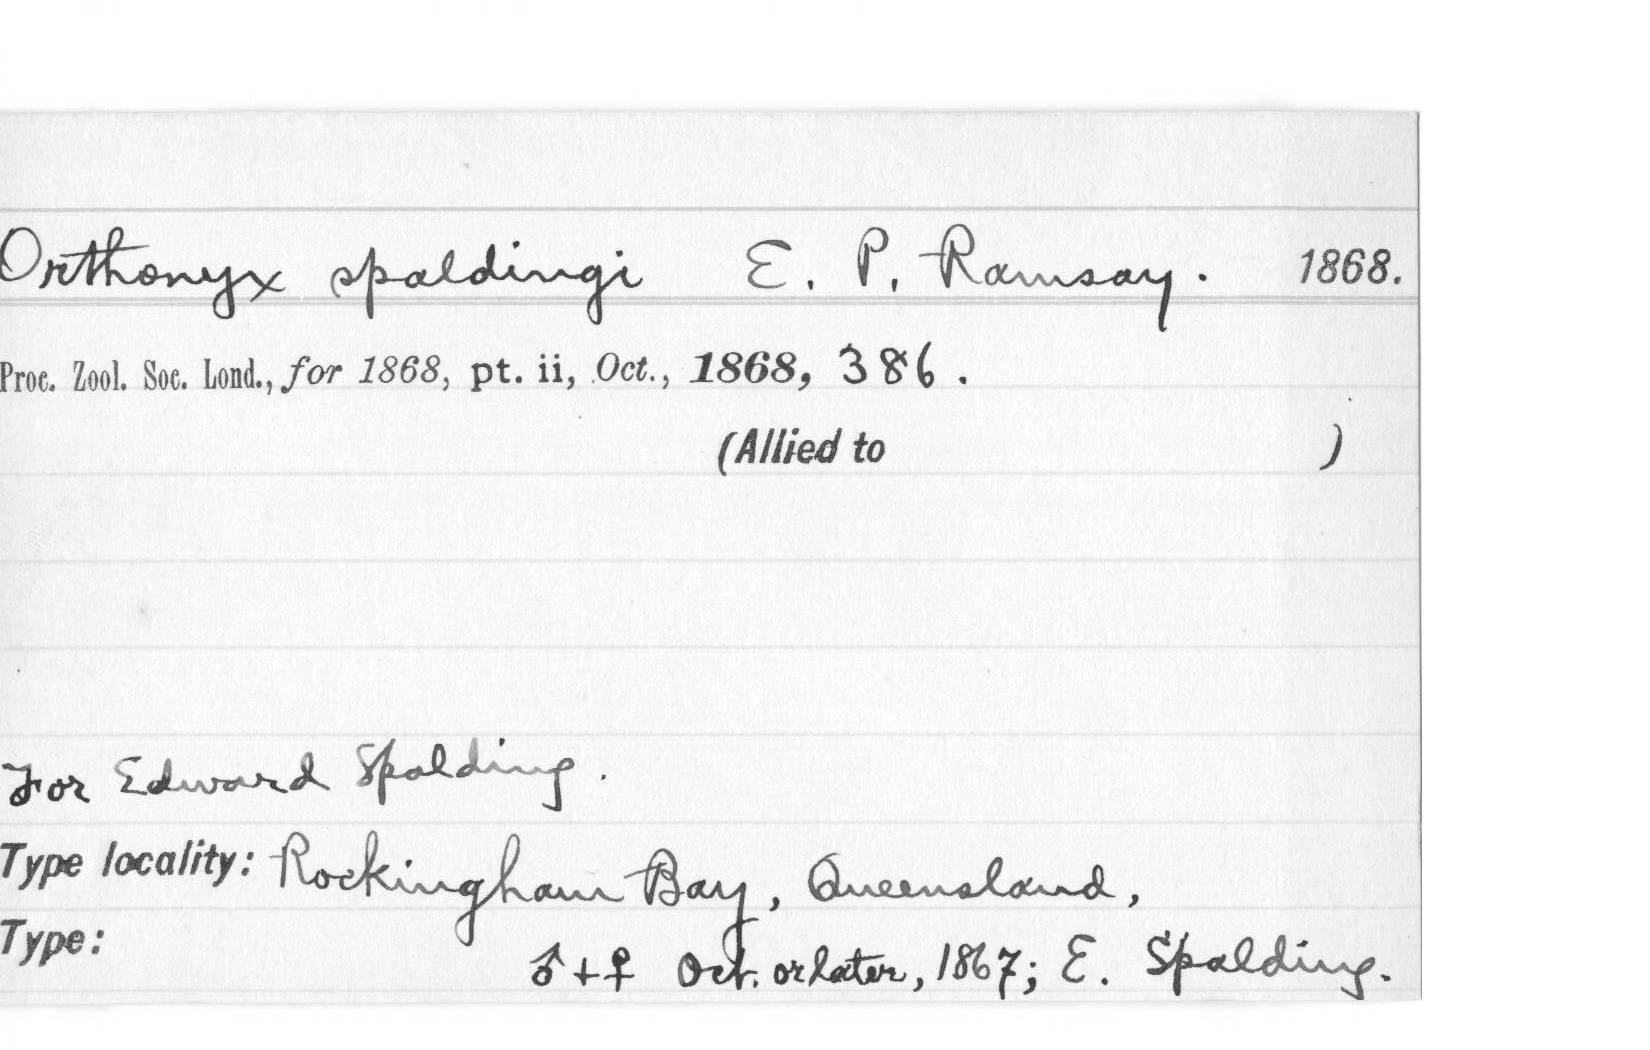 Orthonyx spaldingi E. P. Ramsay. 1868.
Proc. Zool. Soc. Lond., for 1868, pt. ii, Oct., 1868, 386.
(Allied to )
For Edward Spalding.
Type locality: Rockingham Bay, Queensland,
Type: ♂+♀ Oct. or later, 1867; E. Spalding.